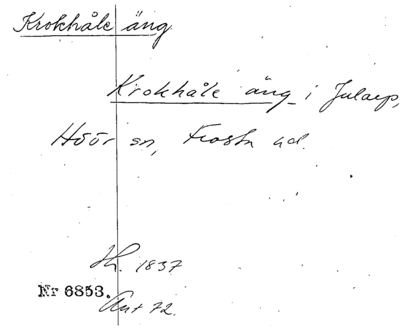 Krokhåle äng
Krokhåle äng i Julaup,
Höör sn, Frosta hd.
Sk. 1837
Nr 6853. Ant 72.